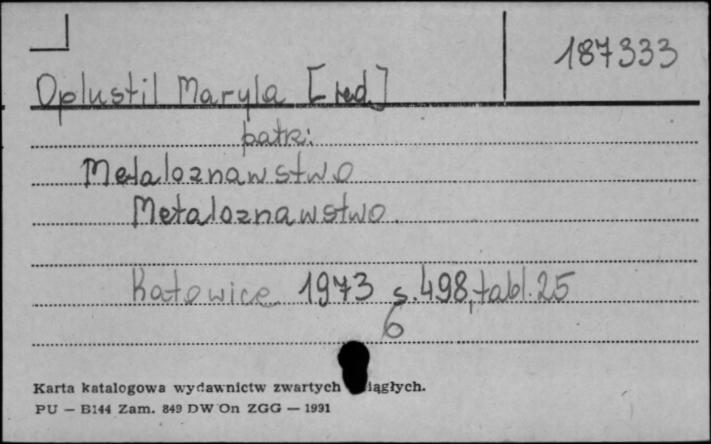 187333
Oplustil Maryla [red]
patrz:
Metaloznawstwo
Metaloznawstwo.
Katowice 1973 s.498, tabl.25
6
Karta katalogowa wydawnictw zwartych iągłych.
PU — B144 Zam. 849 DW On ZGG — 1991